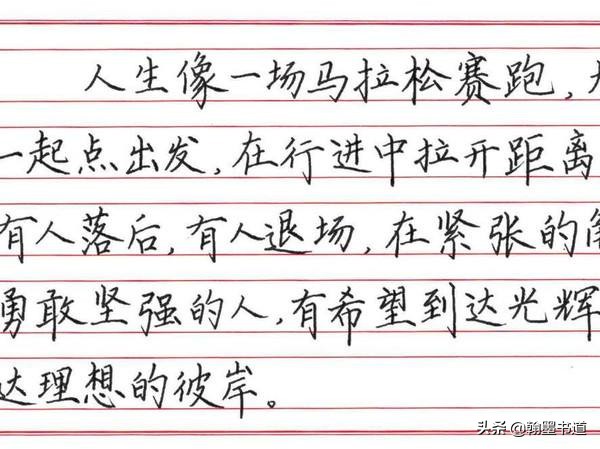 人生像一场马拉松赛跑，
一起点出发，在行进中拉开距离
有人落后，有人退场，在紧张的角
勇敢坚强的人，有希望到达光辉
达理想的彼岸。
头条 @翰墨书道